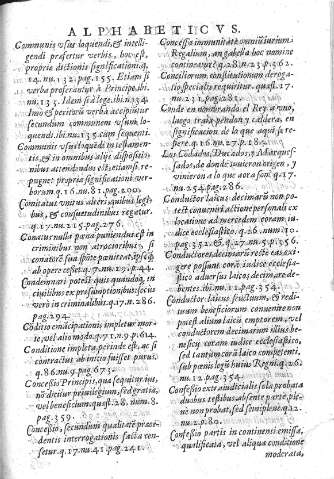 ALPHABETICVS.
Communis usus loquendi, & intelli-
gendi præfertur verbis, hoc est,
propria dictionis significationi. q.
14. nu. 132. pag. 155. Etiam si
verba proferantur à Principe. ibi.
nu. 133. Idem si à lege. ibi. n. 134
Imò & peioris verba accipiuntur
secundum communem usum lo-
quendi. ibi nu. 135. cum sequenti.
Communis usus loquēdi in testamen-
tis, & in omnibus alijs dispositio-
nibus attendendus est, etiamsi re-
pugnet propria significationi ver-
borum. q. 16. nu. 81. pag. 200.
Comitatus unitus alteri, quibus legi-
bus, & consuetudinibus regatur.
q. 17. nu. 215. pag. 276.
Conatus nulla pœna puniendus est in
criminibus non atrocioribus, si
conatore sua spōte pœniteat, ipsoq;
ab opere cesset. q. 17. nu. 19. p. 44.
Condemnari potest quis quandoq; in
civilibus ex præsumptionibus, secus
verò in criminalibus. q. 17. n. 286.
pag. 294.
Cōditio emācipationis impletur mor-
te, vel alio modo. q. 71. n. 9. p. 614.
Conditione impleta, perinde est, ac si
contractus ab initio fuisset purus.
q. 86. nu. 9. pag. 673.
Concessio Principis, qua sequitur ius,
nō dicitur privilegium, sed gratia,
vel beneficium. q. 28. num. 8.
pag. 359.
Concessio secundum qualitatē præce-
dentis interrogationis facta cen-
setur. q. 17. nu. 41. pag. 241.
Concessio immunitatē omniū iurium
Regalium, an gabella hoc nomine
contineatur? q. 28. n. 23. p. 362.
Conciliorum constitutionum deroga-
tio specialis requiritur. quast. 17.
nu. 231. pag. 281.
Conde en nombrando el Rey a uno,
luego traiga pendon y caldera, en
significacion de lo que aqui se re-
sere. q. 16. nu. 27. p. 187.
Los Cōdados, Ducados, y Marque-
sados, de donde tuvieron origen, y
vinieron a lo que aora son? q. 17.
nu. 254. pag. 286.
Conductor laicus decimarū non po-
test conveniri actione personali ex
locatione ad mercedem coram iu-
dice ecclesiastico. q. 26. num. 10.
pag. 352. & q. 27. nu. 5. p. 356.
Conductores decimarū recte eas exi-
gere possunt corā iudice ecclesia-
stico adversus laicos decimas de-
bentes. ibi. nu. 12. pag. 354.
Conductor laicus fructuum, & redi-
tuum beneficiorum convenire non
potest alium laicū emptorem, vel
conductorem decimarum illius be-
neficij coram iudice ecclesiastico,
sed tantum corā laico competenti,
sub pœnis legū huius Regni. q. 26.
nu. 12. pag. 354.
Confessio extraiudicialis sola probata
duobus testibus absente parte, ple-
nè non probat, sed semiplenè. q. 12.
nu. 2. pag. 80.
Confessio partis in continenti emissa,
qualificata, vel aliqua conditione
moderata,